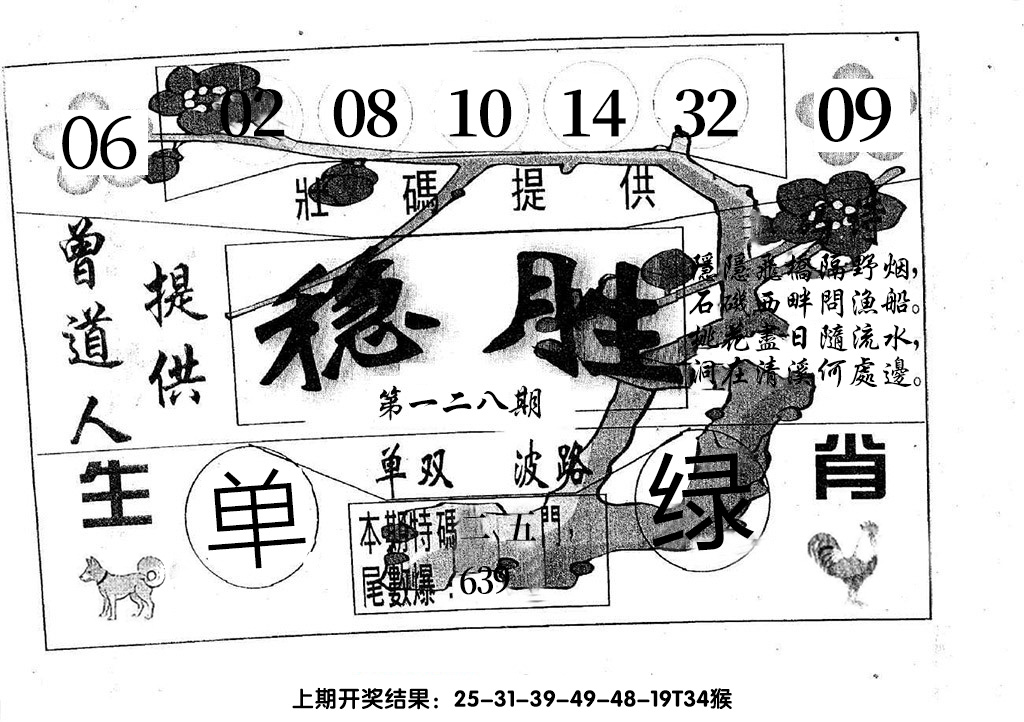 06 02 08 10 14 32 09
壯碼提供
曾道人
提供
穩胜
第一二八期
隱隱飛橋隔野烟，
石磯西畔問漁船。
桃花盡日隨流水，
洞在清溪何處邊。
单双 波路
生 肖
单 绿
本期特碼二、五門，
尾數爆：639
上期开奖结果：25-31-39-49-48-19T34猴